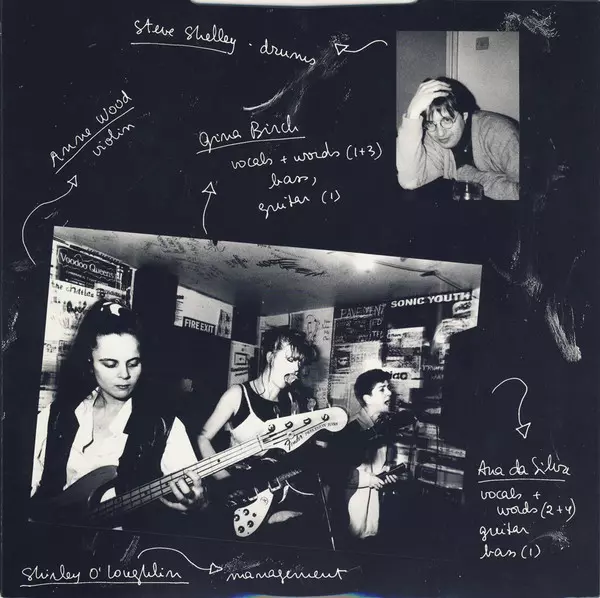 Steve Shelley . drums
Anne Wood
violin
Gina Birch
vocals + words (1+3)
bass,
guitar (1)
Voodoo Queens
FIRE EXIT
PAVEMENT
SONIC YOUTH
Fender
Ana da Silva
vocals +
words (2+4)
guitar
bass (1)
Shirley O'Loughlin
management